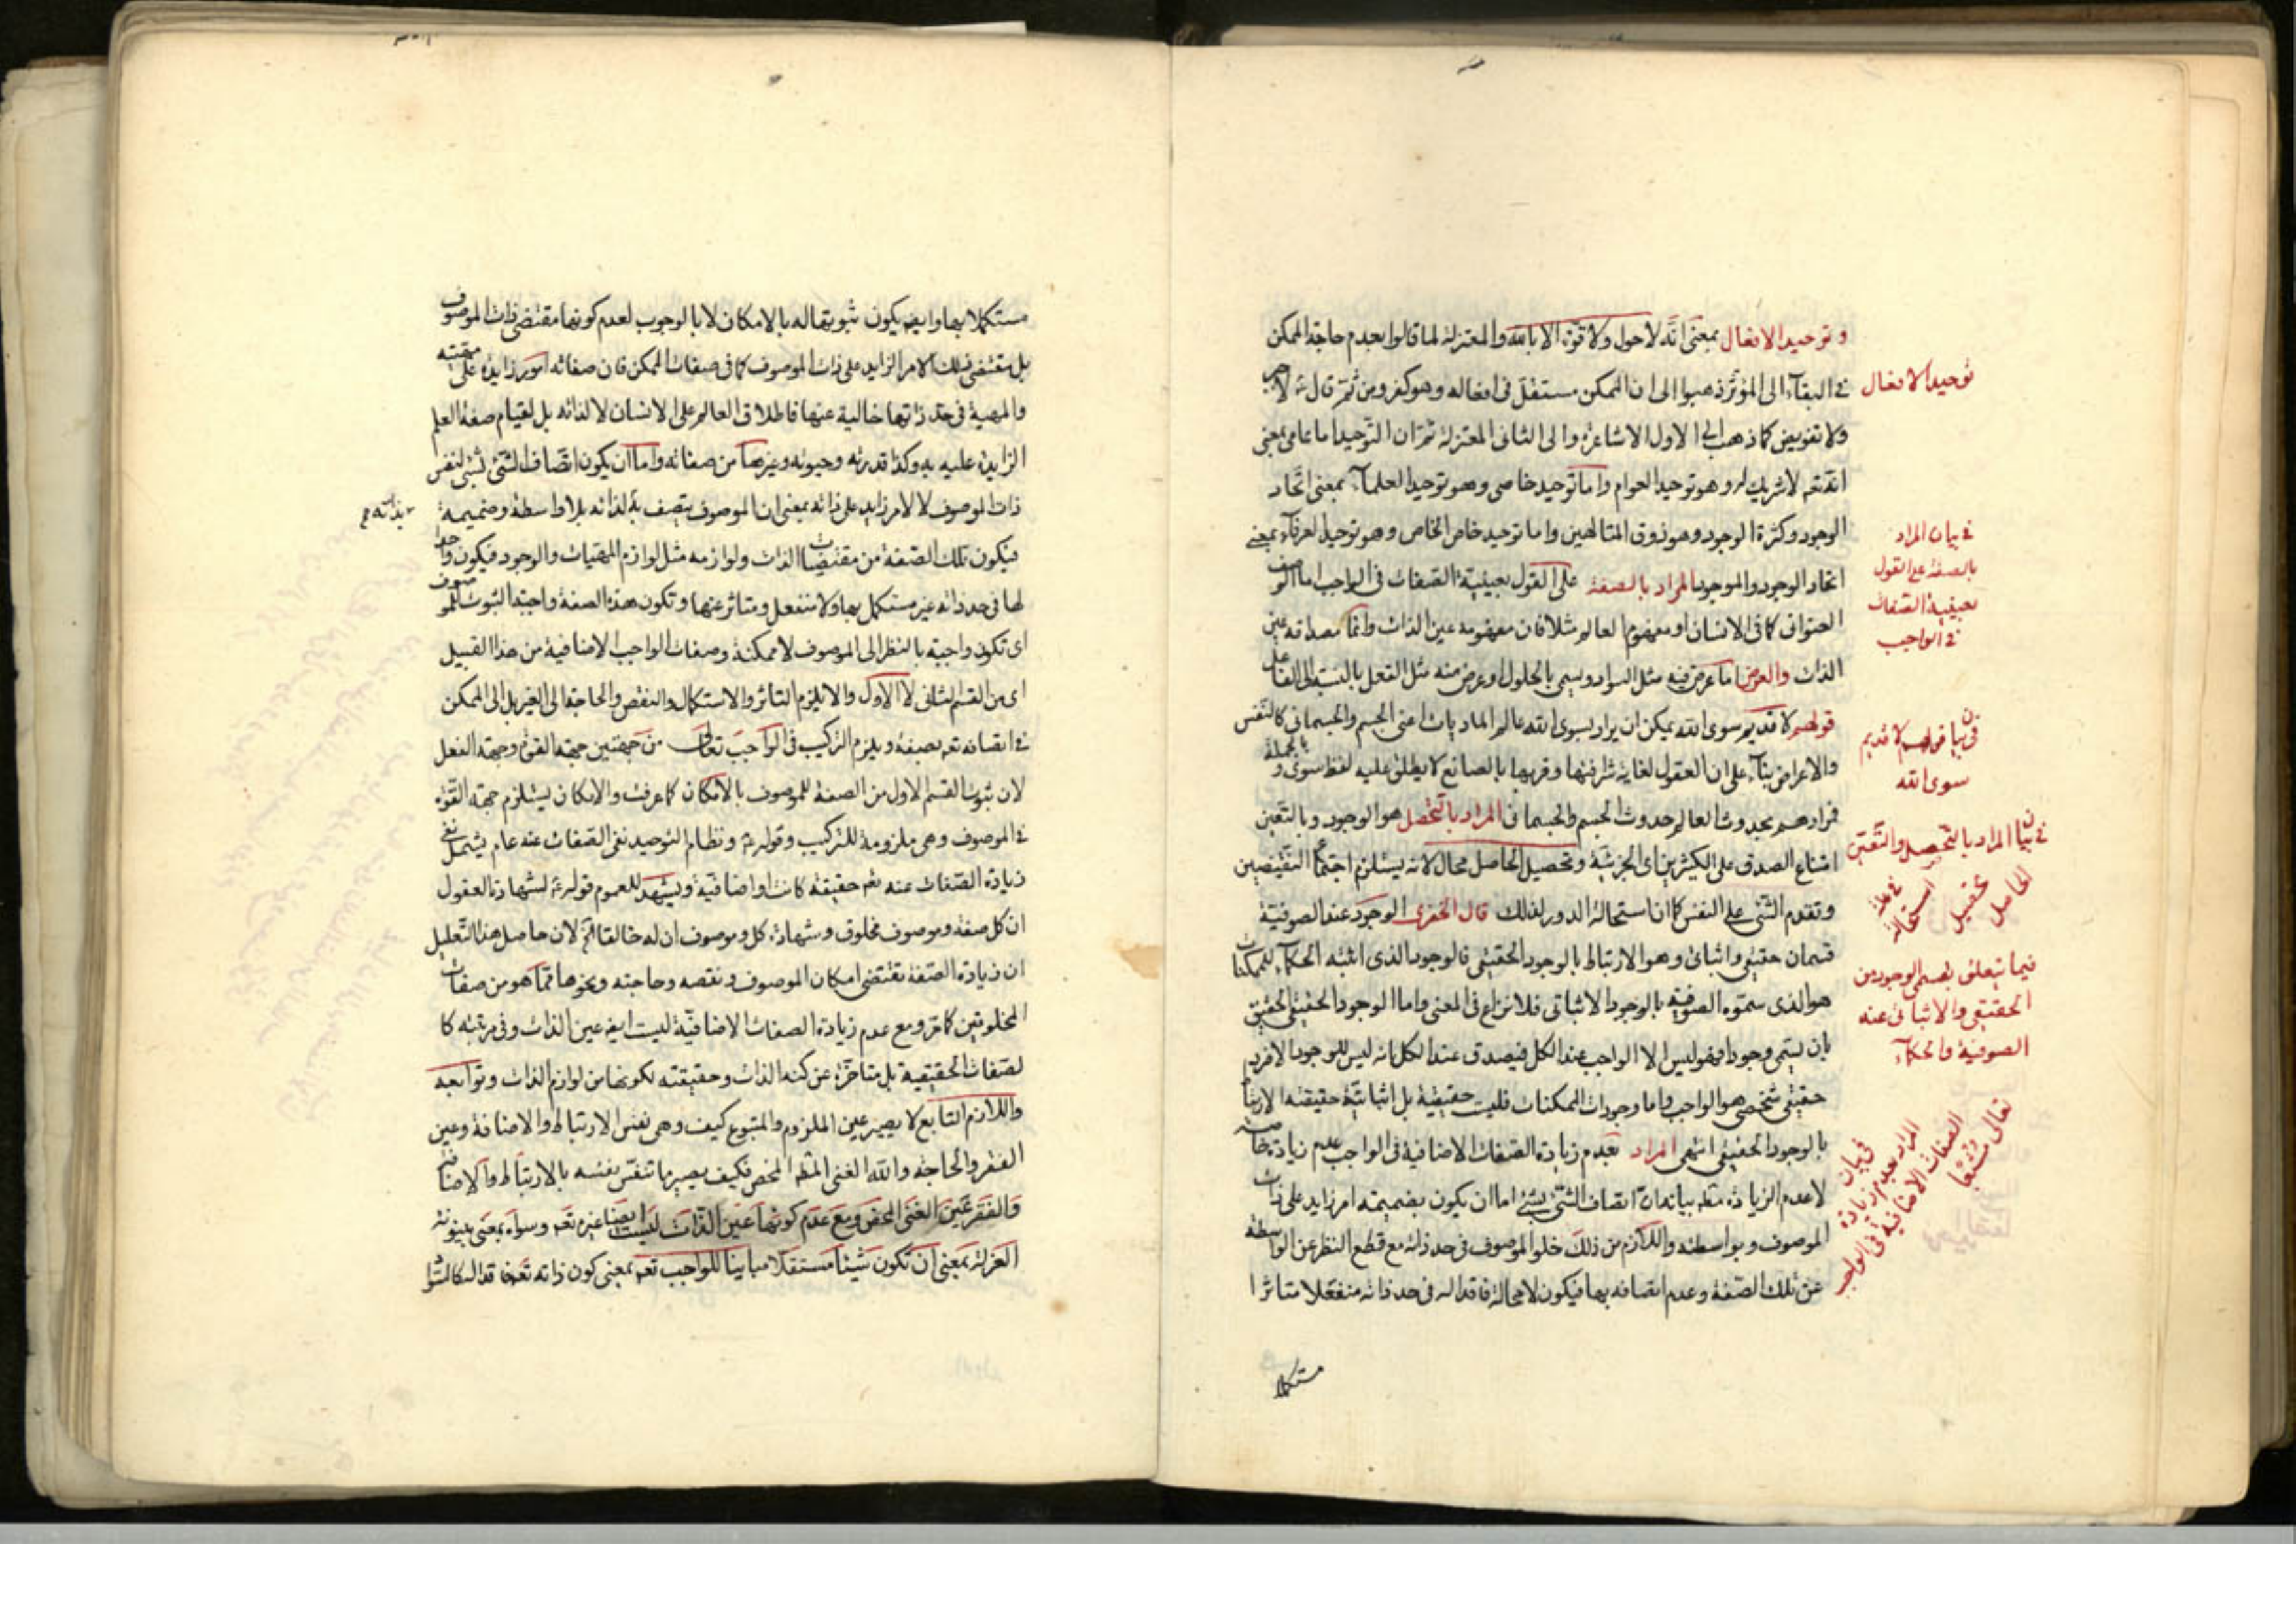 وتوحيد الافعال بمعنى انّه لاحول ولا قوّة الا بالله والمعتزلة لما قالوا بعدم حاجة الممكن
في البقآء الى المؤثر ذهبوا الى ان الممكن مستقل فى افعاله وهو كفر ومن ثمّ قال ع لا جبر
ولا تفويض كما ذهب الى الاول الاشاعرة والى الثانى المعتزلة ثمّ ان التّوحيد اما عامى بمعنى
انّه تعم لا شريك له وهو توحيد العوام واما توحيد خاصى وهو توحيد العلمآء بمعنى اتّحاد
الوجود وكثرة الوجود وهو ذوق المتالهين واما توحيد خاص الخاص وهو توحيد العرفآء بمعنى
اتحاد الوجود والموجود المراد بالصفة على القول بعينيّة الصّفات فى الواجب اما الوصف
العنوانى كما فى الانسان او مفهوم العالم مثلا فان مفهومه عين الذات وانما مصداقه عين
الذات والعرض اما عرض فيه مثل السواد ويسمى بالحلول او عرض منه مثل الفعل بالنسبة الى الفاعل
قولهم لا قديم سوى الله يمكن ان يراد بسوى الله عالم الماديات اعنى الجسم والجسمانى كالنّفس
والاعراض بنآء على ان العقول لغاية شرافتها وقربها بالصانع لا يطلق عليه لفظ سوى وبالجملة
فمرادهم بحدوث العالم حدوث الجسم والجسمانى المراد بالتّحصل هو الوجود وبالتّعين
امتناع الصدق على الكثيرين اى الجزئيّة وتحصيل الحاصل محال لانه يستلزم اجتماع النّقيضين
وتقدم الشّئ على النفس كما ان استحالة الدور لذلك قال الخفرى الوجود عند الصوفيّة
قسمان حقيقى واثباتى وهو الارتباط بالوجود الحقيقى فالوجود الذى اثبته الحكمآء للممكنات
هو الذى سمّوه الصوفيّة بالوجود الاثباتى فلا نزاع فى المعنى واما الوجود الحقيقى الحقيق
بان يسمّى وجودا فهو ليس الا الواجب عند الكل فيصدق عند الكل انه ليس للوجود الا فرد
حقيقى شخصى هو الواجب واما وجودات الممكنات فليت حقيقيّة بل اثباتيّة حقيقته الارتباط
بالوجود الحقيقى انتهى المراد بعدم زيادة الصّفات الاضافية فى الواجب عدم زيادة خاصة
لا عدم الزيادة مط بيانه انّ اتصاف الشّئ بشئ اما ان يكون بضميمة امر زايد على ذات
الموصوف وبواسطته واللازم من ذلك خلو الموصوف فى حد ذاته مع قطع النظر عن الواسطة
عن تلك الصّفة وعدم اتصافه بها فيكون لا محالة فاقدا له فى حد ذاته منفعلا متاثرا
مستكملا
توحيد الافعال
في بيان المراد
بالصفة على القول
بعينية الصّفات
في الواجب
فى بيان قولهم لا قديم
سوى الله
في بيان المراد بالتّحصل والتّعيّن
في علّة استحالة تحصيل الحاصل
فيما يتعلق بقسمى الوجود من
الحقيقى والاثباتى عنه
الصوفية والحكمآء
فى بيان
المراد بعدم زيادة
الصفات الاضافية فى الواجب
تعالى
مستكملا بها وايضا يكون ثبوتها له بالامكان لا بالوجوب لعدم كونها مقتضى ذات الموصوف
بل مقتضى ذلك الامر الزايد على ذات الموصوف كما فى صفات الممكن فان صفاته امور زايدة على مهيته
والمهية فى حد ذاتها خالية عنها فاطلاق العالم على الانسان لا لذاته بل لقيام صفة العلم
الزايدة عليه به وكذا قدرته وحيوته وغيرها من صفاته واما ان يكون اتّصاف الشّئ بشئ لنفس
ذات الموصوف لا لامر زايد على ذاته بمعنى ان الموصوف يتصف به لذاته بلا واسطة وضميمة
فيكون تلك الصّفة من مقتضيات الذات ولوازمه مثل لوازم المهيّات والوجود فيكون واجدا
لها فى حد ذاته غير مستكمل بها ولا منفعل ومتاثر عنها وتكون هذه الصفة واجبة الثبوت للموصوف
اى تكون واجبة بالنظر الى الموصوف لا ممكنة وصفات الواجب الاضافية من هذا القبيل
اى من القسم الثانى لا الاول والا يلزم التاثر والاستكمال والنقص والحاجة الى الغير بل الى الممكن
في اتصافه تعم بصفة ويلزم التركيب فى الواجب تعالى من جهتين جهة القوة وجهة الفعل
لان ثبوت القسم الاول من الصفة للموصوف بالامكان كما عرفت والامكان يستلزم جهة القوّة
في الموصوف وهى ملزومة للتركيب وقوله ع ونظام التوحيد نفى الصّفات عنه عام يشمل نفى
زيادة الصّفات عنه تعم حقيقة كانت او اضافيّة ويشهد للعموم قوله ع لشهادة العقول
ان كل صفة وموصوف مخلوق وشهادة كل وموصوف ان له خالقا لان حاصل هذا التّعليل
ان زيادة الصّفة تقتضى امكان الموصوف ونقصه وحاجته ونحوها ممّا هو من صفات
المخلوقين كما مرّ ومع عدم زيادة الصفات الاضافيّة ليت ايضا عين الذات وفى مرتبته كا
لصّفات الحقيقية بل متاخّرة عن كنه الذات وحقيقته لكونها من لوازم الذات وتوابعه
واللازم التابع لا يصير عين الملزوم والمتبوع كيف وهى نفس الارتباط والاضافة وعين
الفقر والحاجة والله الغنى المط المحض فكيف يصير ما نفس نفسه بالارتباط والاضافة
والفقر عين الغنى المحض ومع عدم كونها عين الذات ليست ايضا غيره تعم وسواه بمعنى بينونة
العزلة بمعنى ان تكون شيئا مستقلا مباينا للواجب تعم بمعنى كون ذاته تعم فاقدا لكمالات
بذاته